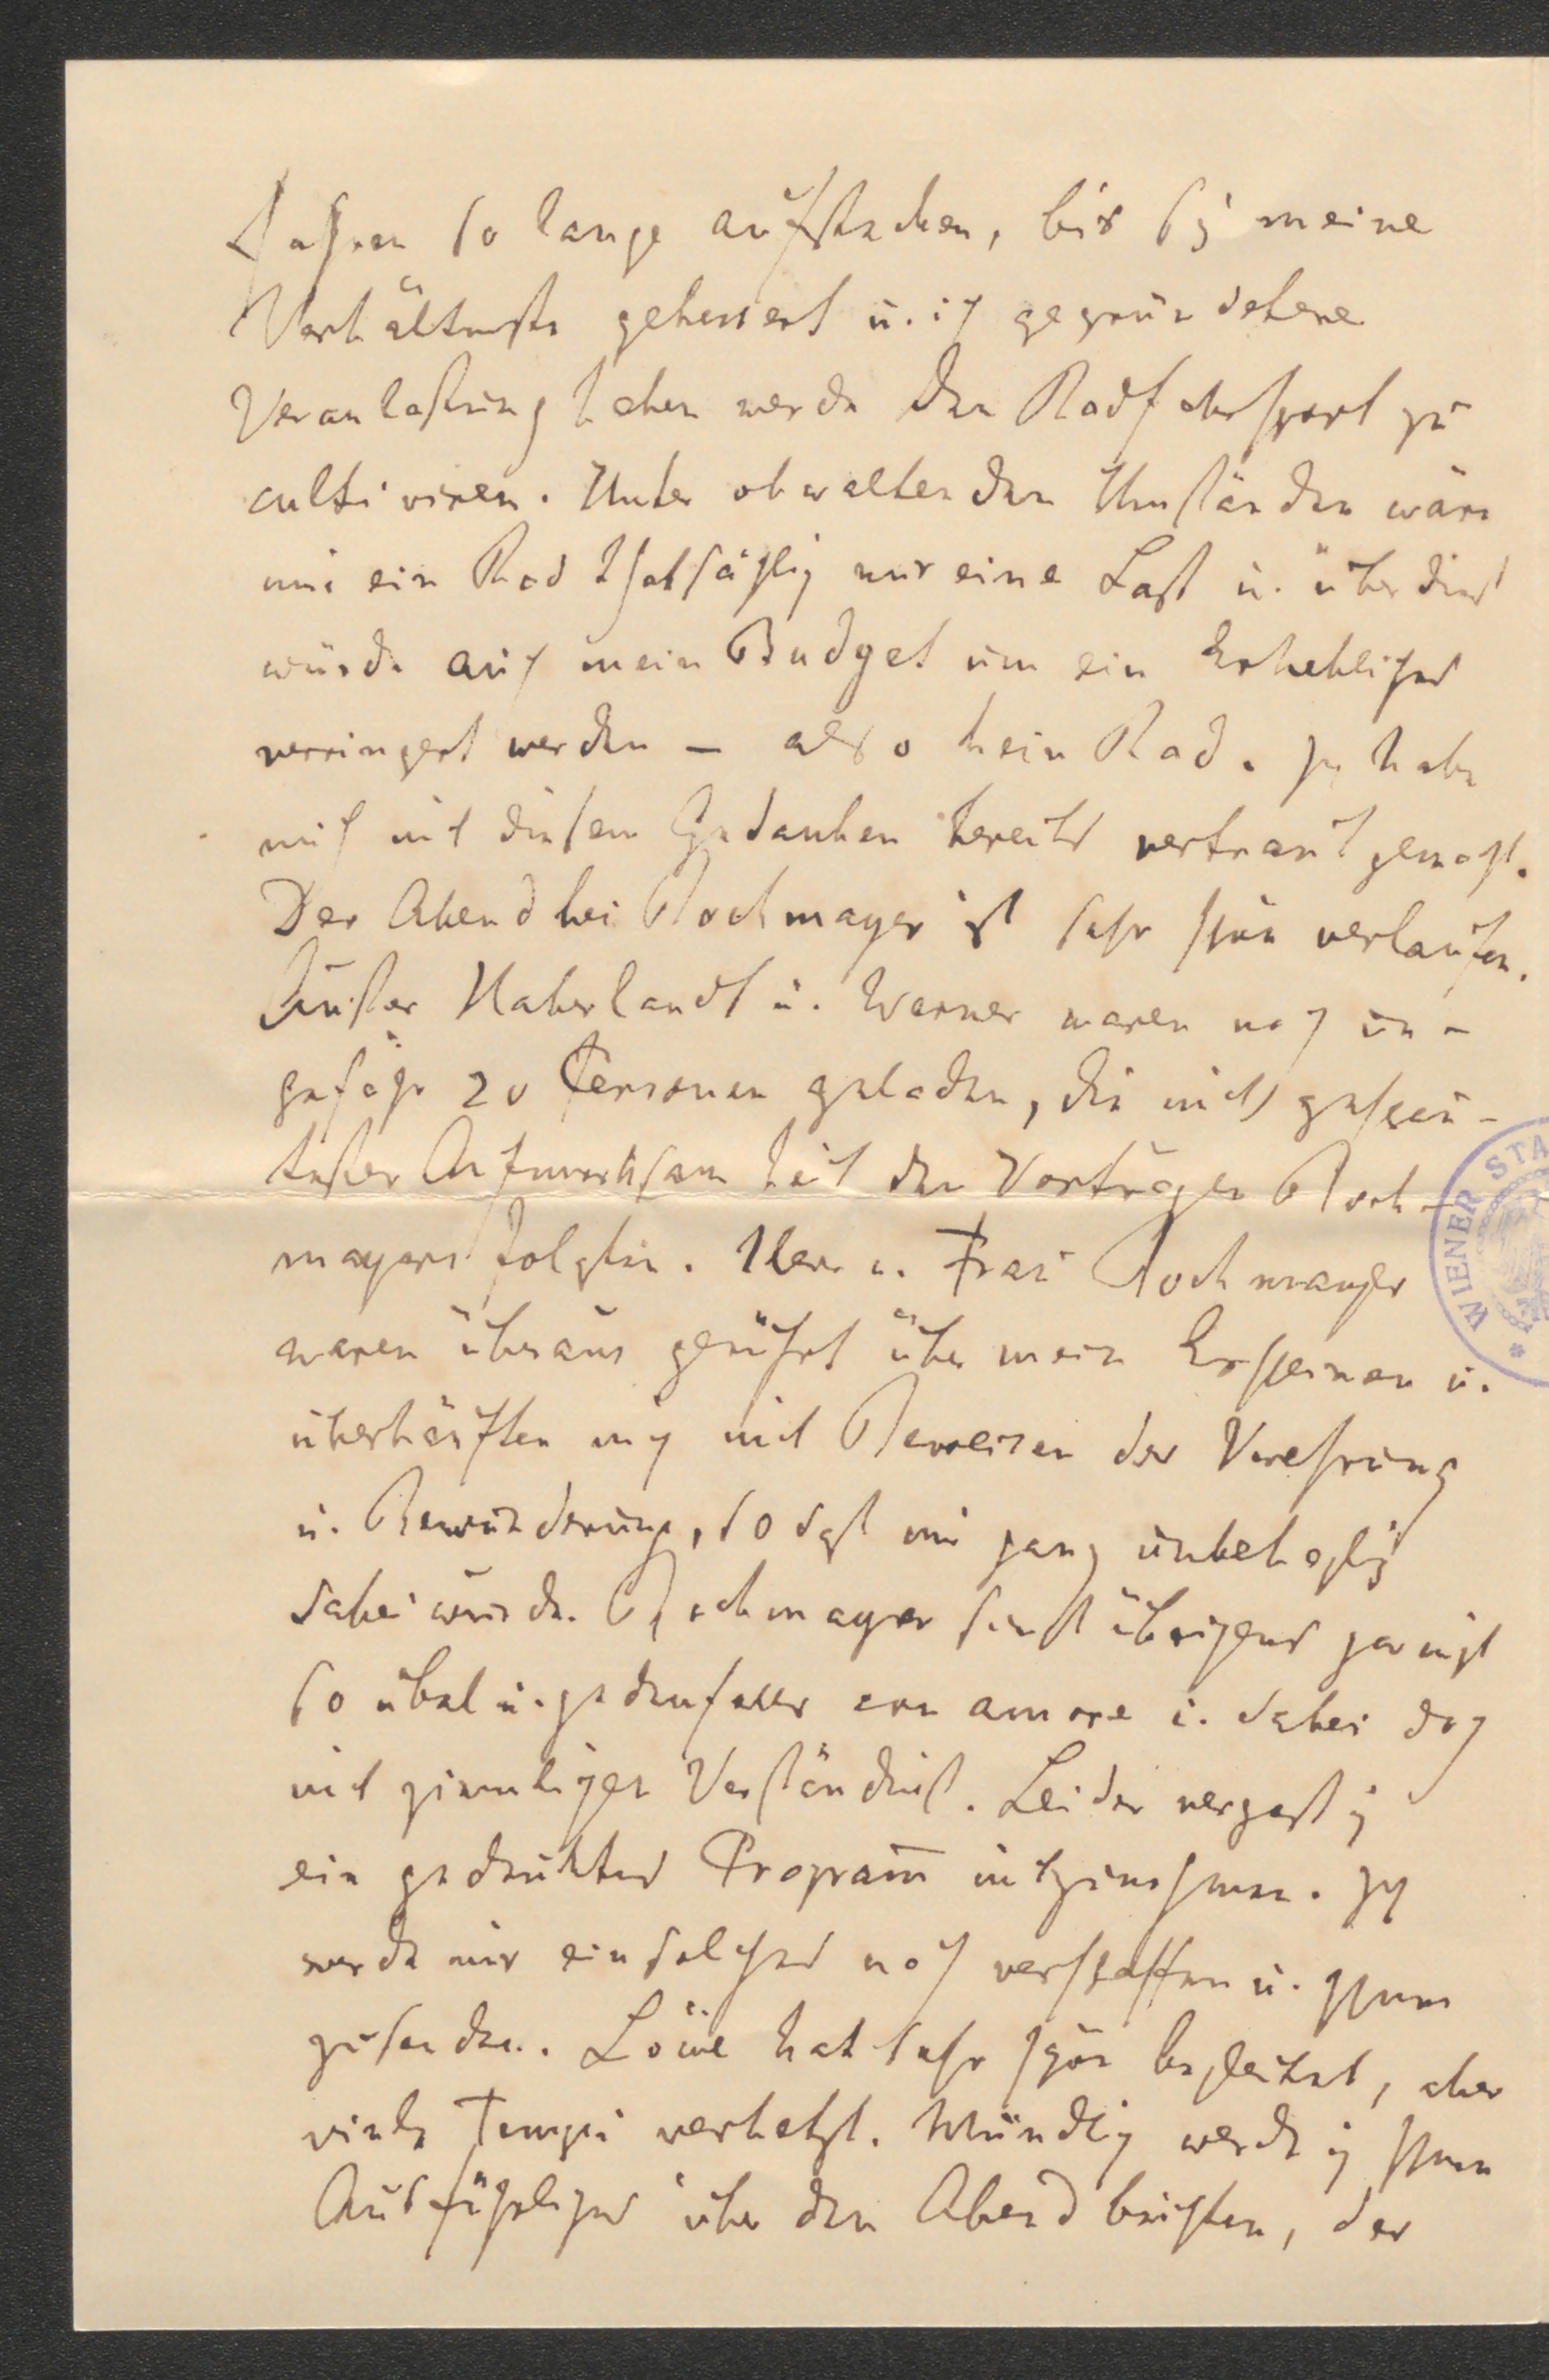 Fahren so lange aufstecken, bis sich meine
Verhältnisse gebessert u. ich gegründetere
Veranlassung haben werde den Radfahrsport zu
cultiviren. Unter obwaltenden Umständen wäre
mir ein Rad thatsächlich nur eine Last u. überdies
würde auch mein Budget um ein Erhebliches
verringert werden – also kein Rad. Ich habe
mich mit diesem Gedanken bereits vertraut gemacht.
Der Abend bei Rochmayer ist sehr schön verlaufen.
Außer Haberlandt u. Werner waren noch un-
gefähr 20 Personen geladen, die mit gespann-
tester Aufmerksamkeit den Vorträgen Roch-
mayers folgten. Herr u. Frau Rochmayer
waren überaus gerührt über mein Erscheinen u.
überhäuften mich mit Beweisen der Verehrung
u. Bewunderung, sodaß mir ganz unbehaglich
dabei wurde. Rochmayer singt übrigens gar nicht
so übel u. jedenfalls con amore u. dabei doch
mit ziemlicher Verständniß. Leider vergaß ich
ein gedrucktes Program̅ mitzunehmen. Ich
werde mir ein solches noch verschaffen u. Ihnen
zusenden. Löwe hat sehr schön begleitet, aber
viele Tempi verhetzt. Mündlich werde ich Ihnen
Ausführliches über den Abend berichten, der
WIENER STA